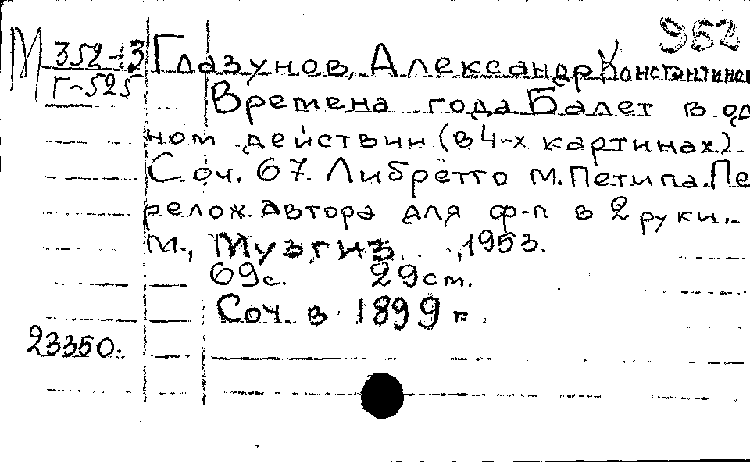 952
М 352-3 Глазунов, Александр Константинов
Г-525
Времена года Балет в од
ном действии (в 4-х картинах).
Соч. 67. Либретто М. Петипа. Пе
релож. автора для ф-п в 2 руки.
М., Музгиз, 1953.
69с. 29см.
Соч. в 1899 г.
23350.